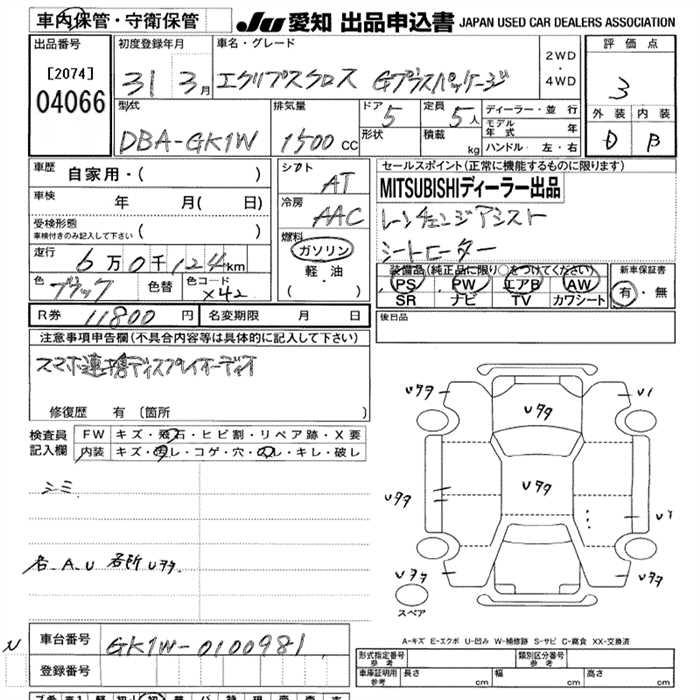 車内保管・守衛保管
JU 愛知 出品申込書 JAPAN USED CAR DEALERS ASSOCIATION
出品番号
[2074]
04066
初度登録年月
31 3月
車名・グレード
エクリプスクロス Gプラスパッケージ
2WD
・
4WD
評価点
3
外装 内装
D B
型式
DBA-GK1W
排気量
1500 CC
ドア 5
形状
定員 5人
積載 kg
ディーラー・並行
モデル年式 年
ハンドル・左・右
車歴 自家用・( )
車検 年 月( 日)
受検形態
車検付きのみ記入して下さい ( )
走行 6万0千124km
色 ブラック 色替 色コード X42
シフト AT
冷房 AAC
燃料
ガソリン
軽・油
( ・ )
セールスポイント(正常に機能するものに限ります)
MITSUBISHIディーラー出品
レーンチェンジアシスト
シートヒーター
装備品(純正品に限り○をつけてください)
PS PW エアB AW
SR ナビ TV カワシート
新車保証書
有・無
R券 11800円 名変期限 月 日
後日品
注意事項申告欄(不具合内容等は具体的に記入して下さい)
スマホ連携ディスプレイオーディオ
修復歴 有 〔箇所 〕
検査員記入欄
FW キズ・飛石・ヒビ割・リペア跡・X要
内装 キズ・汚レ・コゲ・穴・のレ・キレ・破レ
シミ
各A.U 各所Uヲタ
Uヲタ
Uヲタ
U1
Uヲタ
Uヲタ
Uヲタ
Uヲタ
スペア
A-キズ E-エクボ U-凹み W-補修跡 S-サビ C-腐食 XX-交換済
車台番号 GK1W-0100981
登録番号
形式指定番号 参考
類別区分番号 参考
車庫証明用 参考 長さ cm 幅 cm 高さ cm